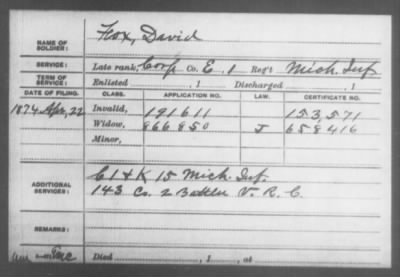 NAME OF SOLDIER: Fox, David
SERVICE: Late rank, Corp Co. E, 1 Reg't Mich. Inf
TERM OF SERVICE: Enlisted , 1 Discharged , 1
DATE OF FILING. CLASS. APPLICATION NO. LAW. CERTIFICATE NO.
1874 Apr, 22 Invalid, 191611 153,571
Widow, 866850 J 658416
Minor,
ADDITIONAL SERVICES: C 1 & K 15 Mich. Inf.
143 Co. 2 Battln V. R. C.
REMARKS:
Died , 1 , at